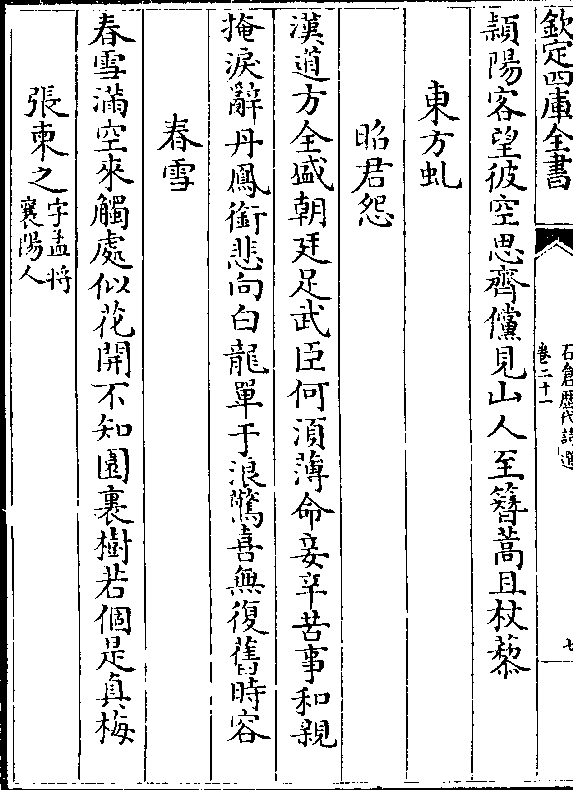 欽定四庫全書
石倉歷代詩選
卷二十一
七
潁陽客望彼空思齊儻見山人至簪蒿且杖藜
東方虬
昭君怨
漢道方全盛朝廷足武臣何須薄命妾辛苦事和親
掩淚辭丹鳳銜悲向白龍單于浪驚喜無復舊時容
春雪
春雪滿空來觸處似花開不知園裏樹若個是真梅
張柬之字孟將襄陽人